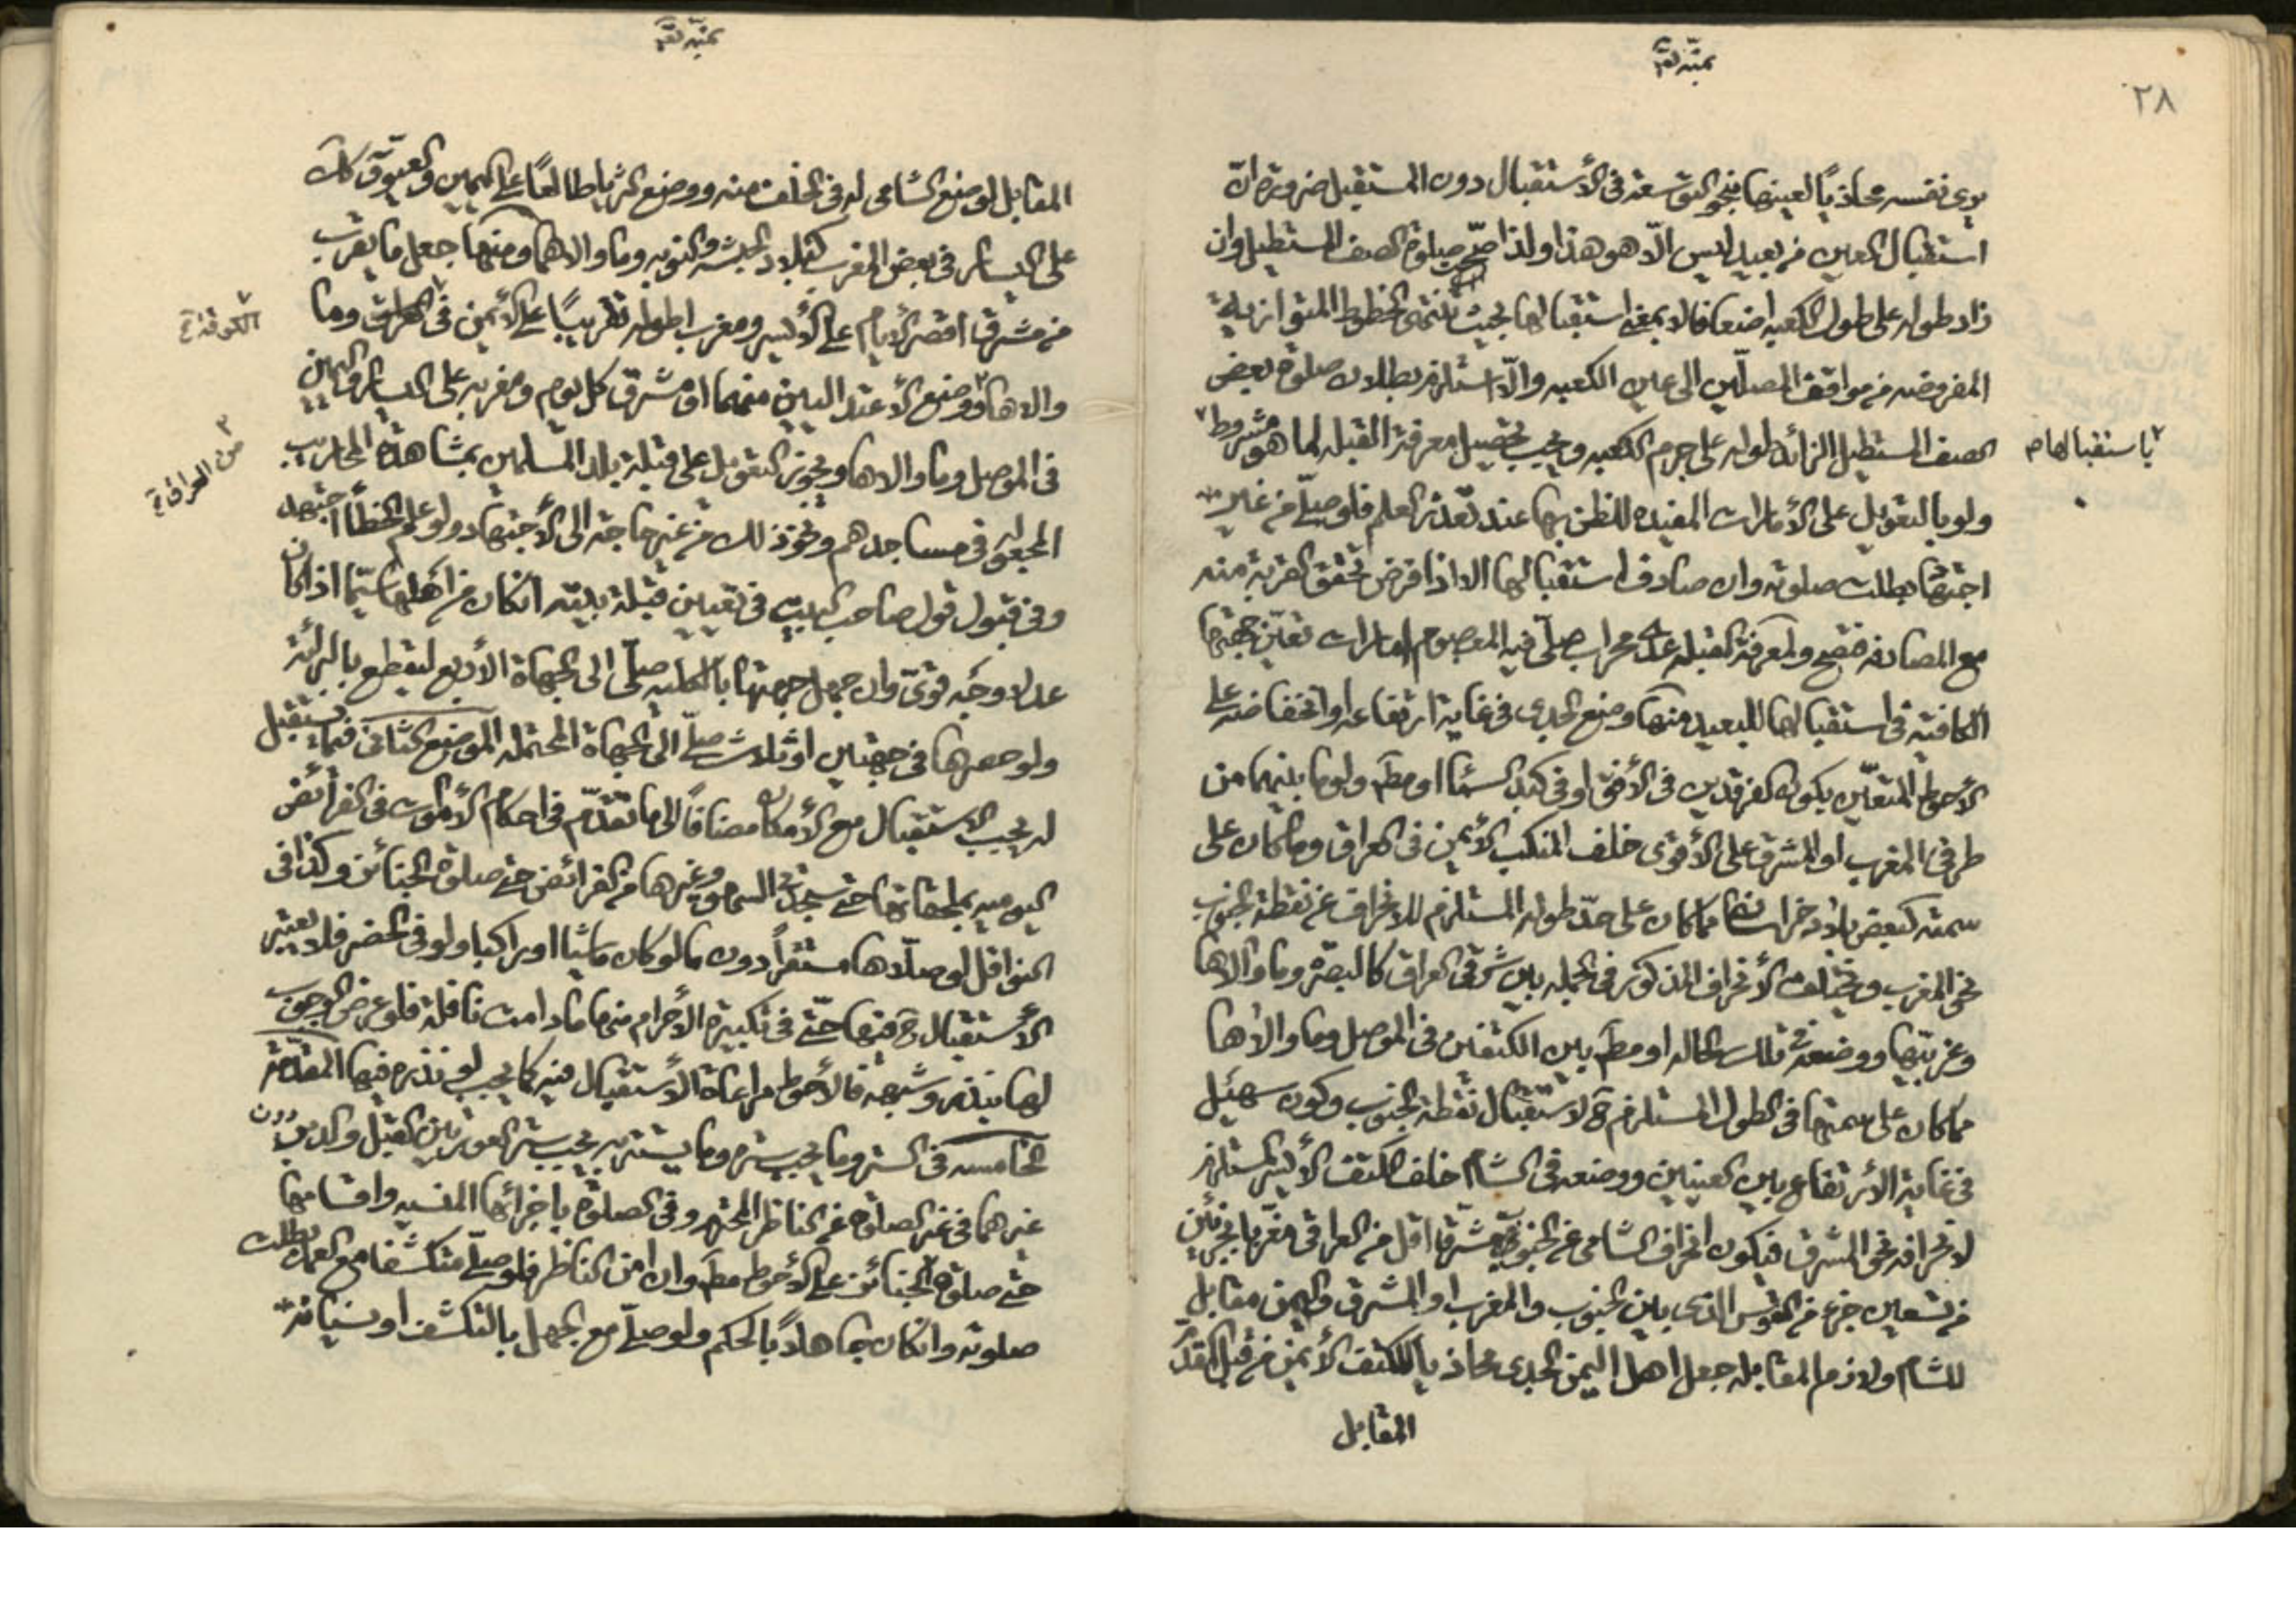 ٢٨
يرى نفسه محاذيًا لعينها بنحو التوسعة في الأستقبال دون المستقبل ضرورة انّ
استقبال العين من بعيد ليس الّا هو هذا ولذا صحّ صلوة الصف المستطيل وان
زاد طوله على طول الكعبه اضعافا لا بمعنى استقبالها بحيث تنتهى الخطوط المتوازية
المفروضه من مواقف المصلّين الى عين الكعبه والّا استلزم بطلان صلوة بعض
الصف المستطيل الزائد طوله على جرم الكعبه ويجب تحصيل معرفة القبله لما هو مشروط
باستقبالها م
ولو بالتعويل على الأمارات المفيده للظن بها عند تعذر العلم فلو صلّى من غير
اجتهاد بطلت صلوته وان صادف استقبالها الا اذا فرض تحقق القربة منه
مع المصادفه فتصح ولمعرفة القبله عدا محراب صلّى فيه المعصوم امارات تعيّن جهتها
الكافية في استقبالها للبعيد منها وضع الجدى في غاية ارتفاعه او انخفاضه على
الأحوط المتعيّن بكون الفرقدين في الأفق او في كبد السماء او مطم ولو ما بينهما من
طرفى المغرب او المشرق على الأقوى خلف المنكب الأيمن في العراق وما كان على
سمته كبعض بلاد خراسان مما كان على حدّ طوله المستلزم للانحراف عن نقطة الجنوب
نحو المغرب ويختلف الأنحراف المذكور في الجمله بين شرقى العراق كالبصرة وما والاها
وغربيّها ووضعه في تلك الحاله او مطم بين الكتفين في الموصل وما والاها
مما كان على سمتها في الطول المستلزم ح لاستقبال نقطة الجنوب وكون سهيل
في غاية الأرتفاع بين العينين ووضعه في الشام خلف الكتف الأيسر المستلزم
لانحرافه نحو المشرق فيكون انحراف الشامى عن الجنوب مشرّقا اقل من العراقى مغرّبا بجزئين
من تسعين جزء من القوس الذى بين الجنوب والمغرب او المشرق واليمن مقابل
للشام ولازم المقابله جعل اهل اليمن الجدى محاذيا للكتف الأيمن من قبل المقدّم
المقابل
المقابل لوضع الشامى له في الخلف منه ووضع الثريا طالعًا على اليمين والعيوق كك
على اليسار في بعض المغرب كبلاد الحبشه والنوبه وما والاهما ومنها جعل ما يقرب
من مشرق اقصر الأيام على الأيسر ومغرب اطوله تقريبًا على الأيمن في العراق وما
الكوفة خ
والاها ووضع الأعتدالين منهما او مشرق كل يوم ومغربه على اليسار واليمين
من العراق خ
في الموصل وما والاها ويجوز التعويل على قبلة بلد المسلمين بمشاهدة المحاريب
المجعوله في مساجدهم ونحو ذلك من غير حاجة الى الأجتهاد ولو علم الخطأ اجتهد
وفي قبول قول صاحب البيت في تعيين قبلة بيته ان كان من اهلها سيّما اذا كان
عدلا وجه قوىّ وان جهل جهتها بالكليه صلّى الى الجهاة الأربع ليقطع بالبرائة
ولو حصرها في جهتين او ثلاث صلّى الى الجهاة المحتمله الموضع الثانى فيما يستقبل
له يجب الاستقبال مع الأمكان مضافًا الى ما تقدّم في احكام الأموات في الفرائض
اليوميه بملحقاتها حتى سجدتى السهو وغيرها من الفرائض حتى صلوة الجنائز وكذا في
النوافل لو صلّاها مستقراً دون ما لو كان ماشيا او راكبا ولو في الحضر فلا يعتبر
الأستقبال ح فيها حتّى في تكبيرة الأحرام منها ما دامت نافلة فلو عرض الوجوب
لها بنذر وشبهه فالأحوط مراعاة الأستقبال فيه كما يجب لو نذره فيها المقدّمة
الخامسه في الستر وما يجب ستره وما يستتر به يجب ستر العورتين القبل والدبر دون
غيرهما في غير الصلوة عن الناظر المحترم وفي الصلوة باجزائها المنسيه واقسامها
حتى صلوة الجنائز على الأحوط مطم وان امن الناظر فلو صلّى منكشفا مع العمد بطلت
صلوته وان كان جاهلاً بالحكم ولو صلّى مع الجهل بالتكشف او نسيانه